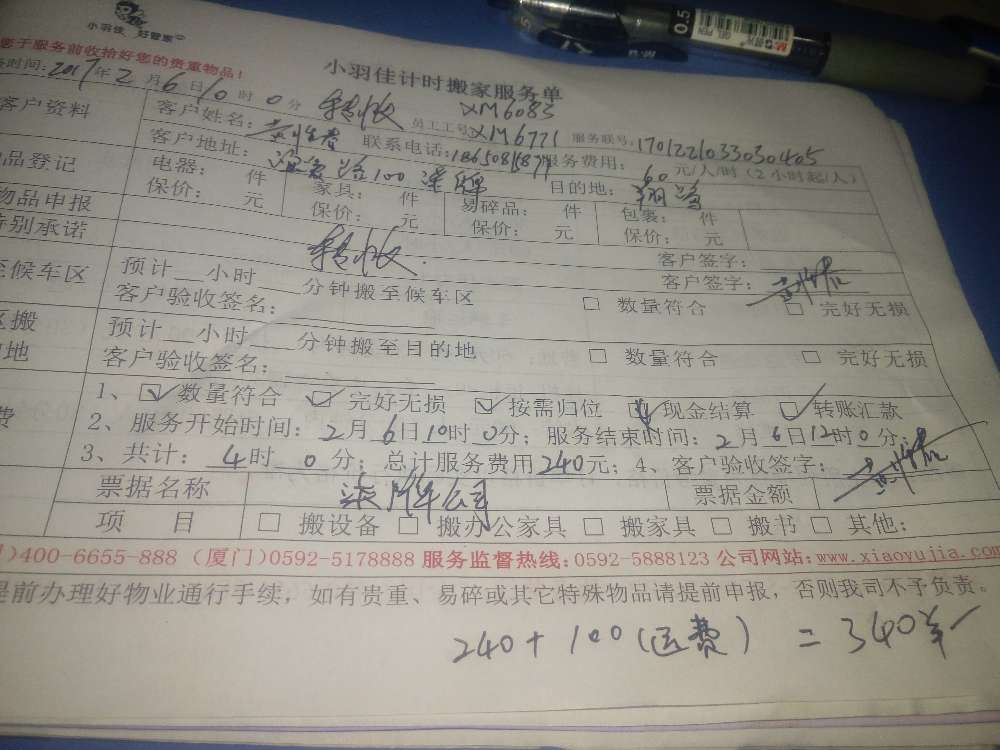 小羽佳 好管家
您于服务前收拾好您的贵重物品！
小羽佳计时搬家服务单
时间：2017年2月6日10时0分 XM6083
客户资料 客户姓名： 员工工号：XM6771 服务联号：1701221033030405
客户地址： 100 联系电话： 服务费用：60元/人/时（2小时起/人）
品登记 电器： 件 家具： 件 易碎品： 件 包裹： 件 目的地：翔鹭
物品申报 保价： 元 保价： 元 保价： 元 保价： 元
特别承诺 客户签字：
客户签字：
至候车区 预计 小时 分钟搬至候车区 □ 数量符合 □ 完好无损
客户验收签名：
区搬 预计 小时 分钟搬至目的地 □ 数量符合 □ 完好无损
地 客户验收签名：
1、☑数量符合 ☑ 完好无损 ☑ 按需归位 ☑ 现金结算 ☑ 转账汇款
费 2、服务开始时间：2月6日10时0分；服务结束时间：2月6日12时0分；
3、共计：4时0分；总计服务费用240元；4、客户验收签字：
票据名称 公司 票据金额
项 目 □ 搬设备 □ 搬办公家具 □ 搬家具 □ 搬书 □ 其他：
)400-6655-888 (厦门)0592-5178888 服务监督热线：0592-5888123 公司网站：www.xiaoyujia.com
提前办理好物业通行手续，如有贵重、易碎或其它特殊物品请提前申报，否则我司不予负责。
240+100(运费)=340元
0.5
GEL PEN
M&G